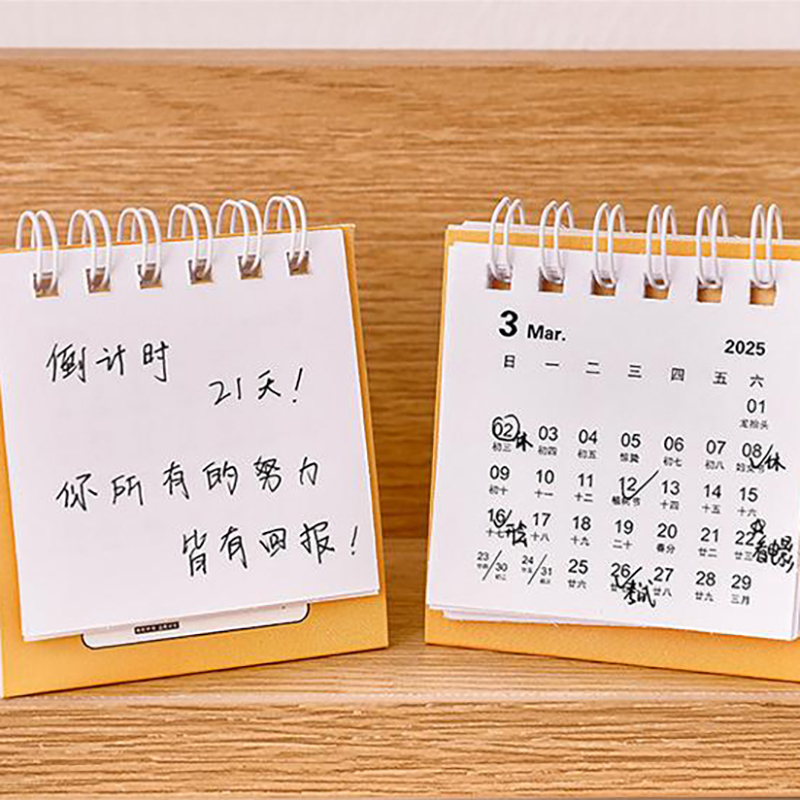 倒计时
21天!
你所有的努力
皆有回报!
3 Mar. 2025
日 一 二 三 四 五 六
01
龙抬头
02 休 03 04 05 06 07 08 休
初三 初四 初五 惊蛰 初七 初八 妇女节
09 10 11 12 13 14 15
初十 十一 十二 植树节 十四 十五 十六
16 17 18 19 20 21 22
十七 十八 十九 二十 春分 廿二 廿三 看电影
23/30 24/31 25 26 27 28 29
廿六 考试 廿八 廿九 三月